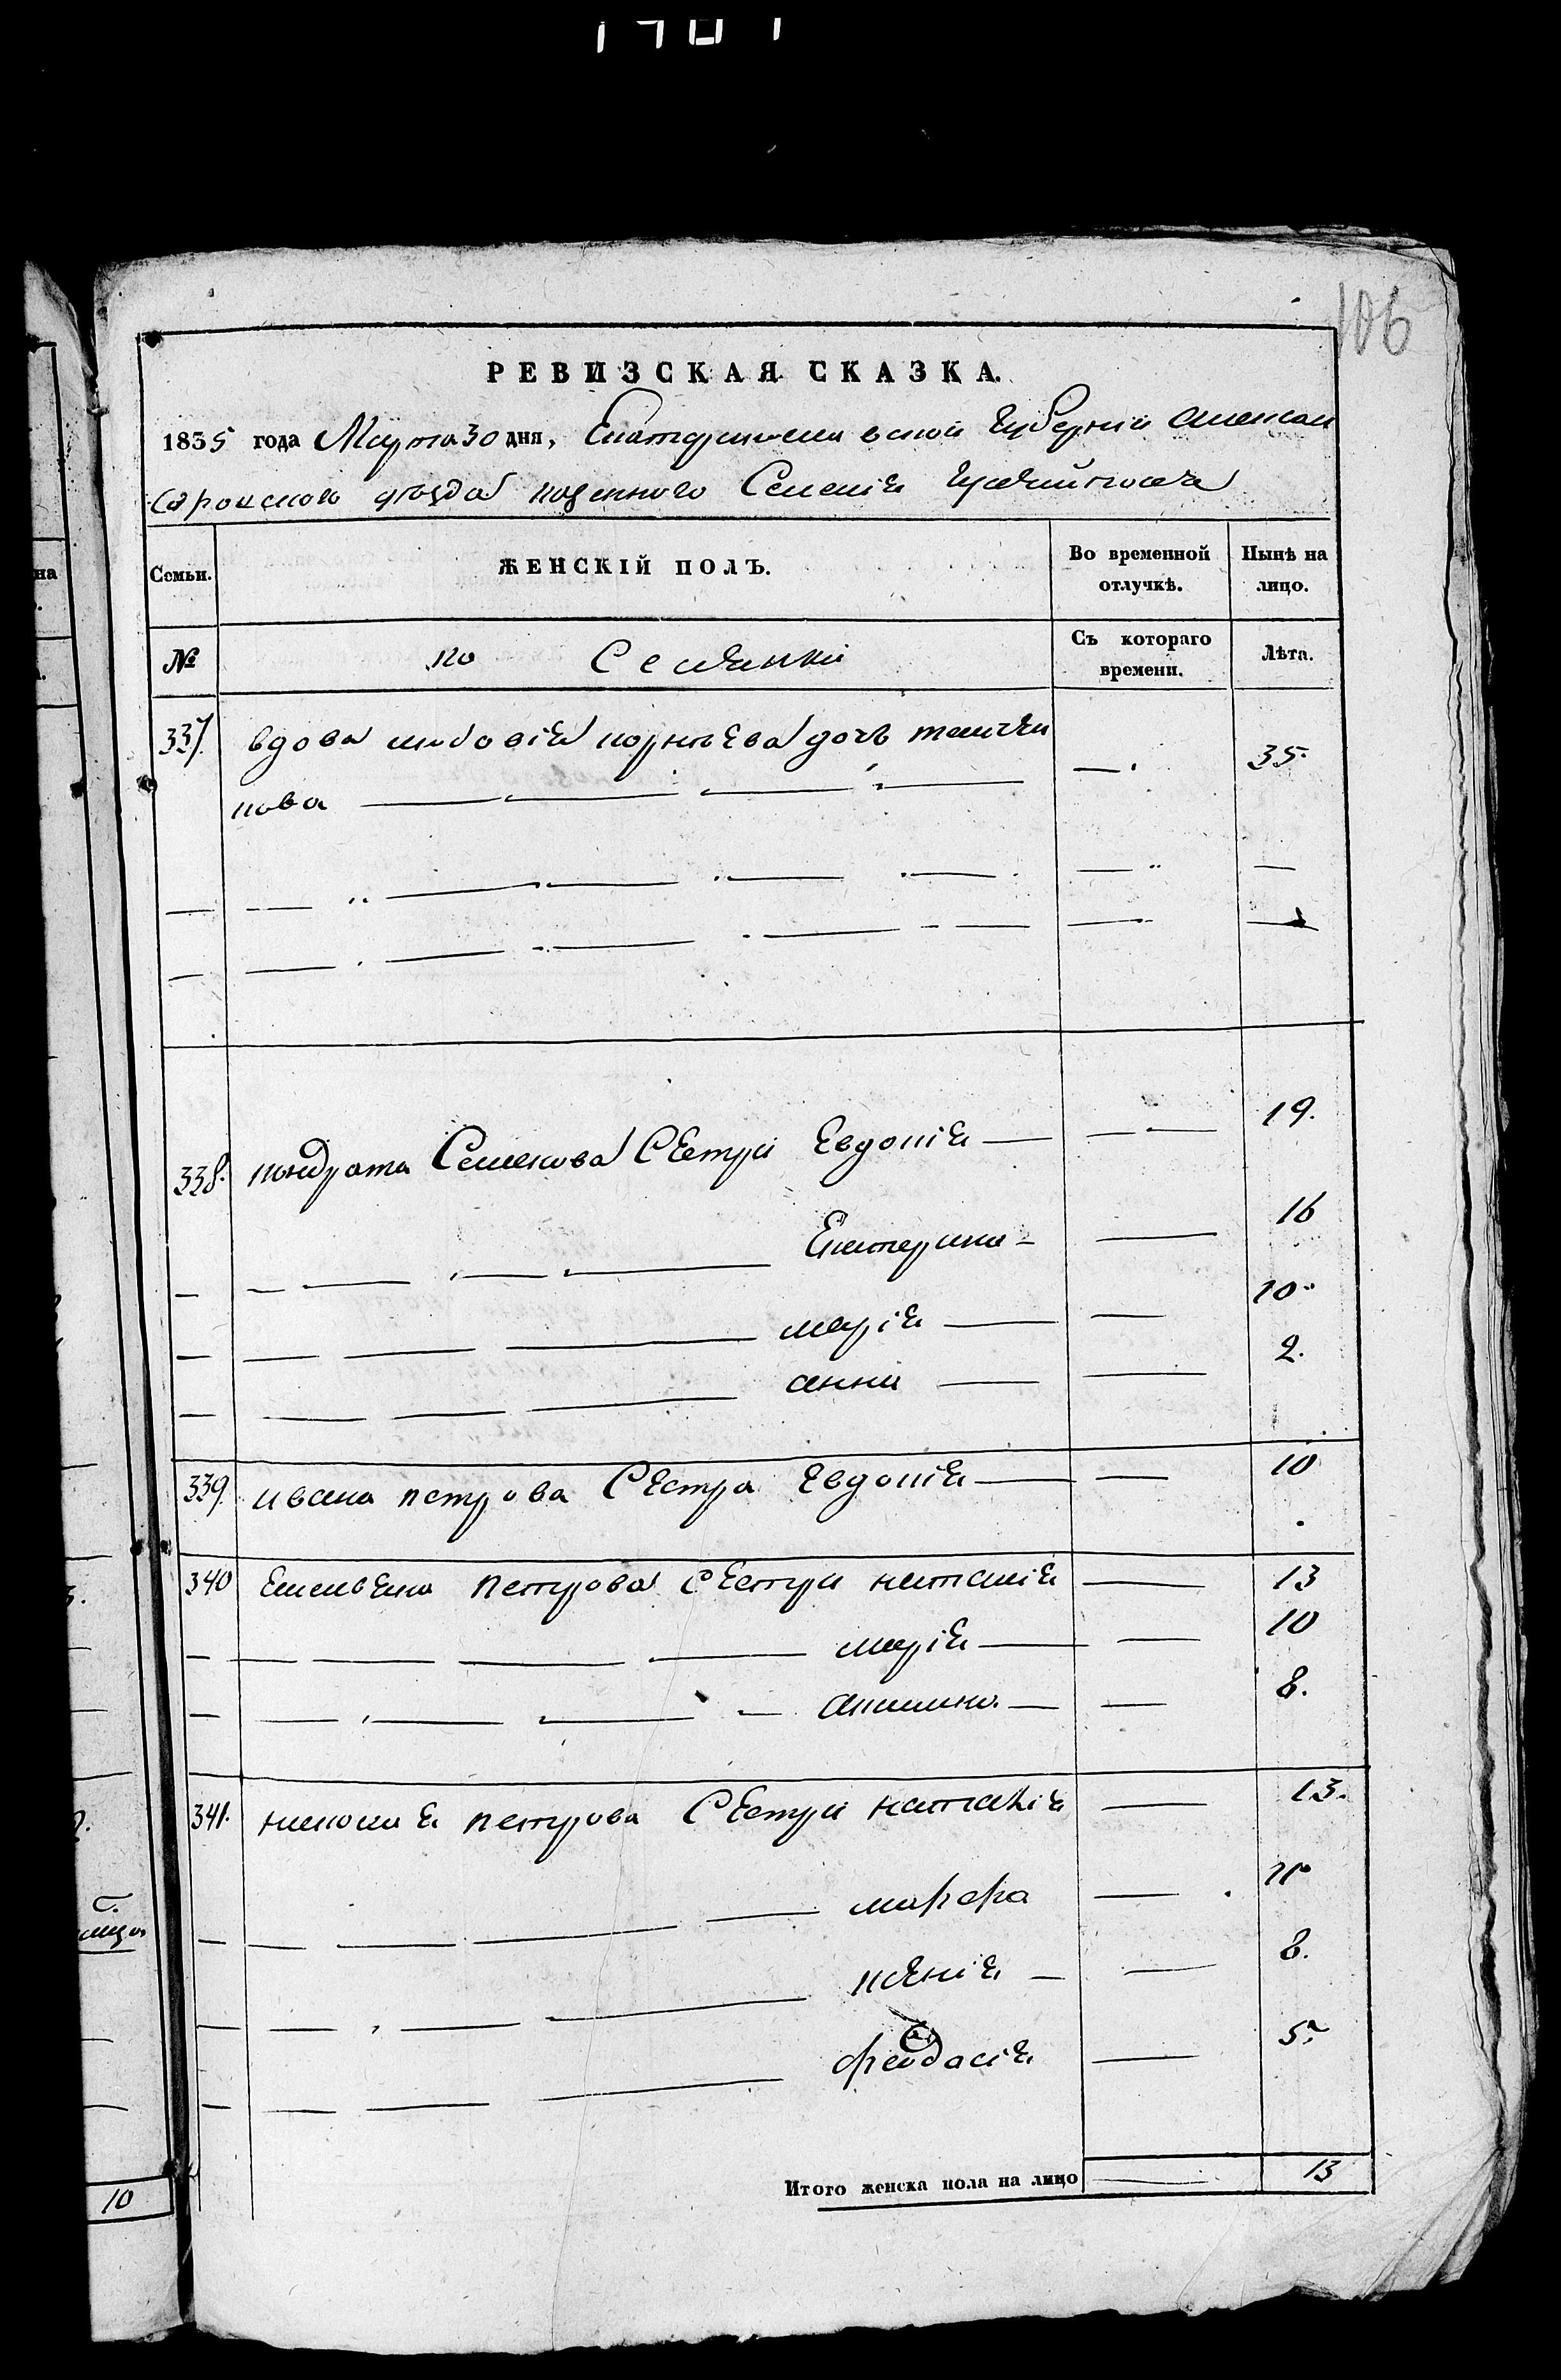 106
РЕВИЗСКАЯ СКАЗКА.
1835 года Марта 30 дня, Екатеринославской Губерніи Алексан
дровского уѣзда казенного Селенія
Семьи.
ЖЕНСКІЙ ПОЛЪ.
Во временной отлучкѣ.
Нынѣ на лицо.
№
Съ котораго времени.
Лѣта.
337. вдова корнѣева дочь 35.
кова
338. кондрата Семенова Сестри Евдокія 19.
Екатерина 16
марія 10.
анна 2.
339. ивана петрова Сестра Евдокія 10
340 емельяна петрова Сестри наталія 13
марія 10
акилина 8.
341. николая петрова Сестри наталія 13.
марфа 11
ксенія 8.
феодасія 5.
Итого женска пола на лицо 13
10